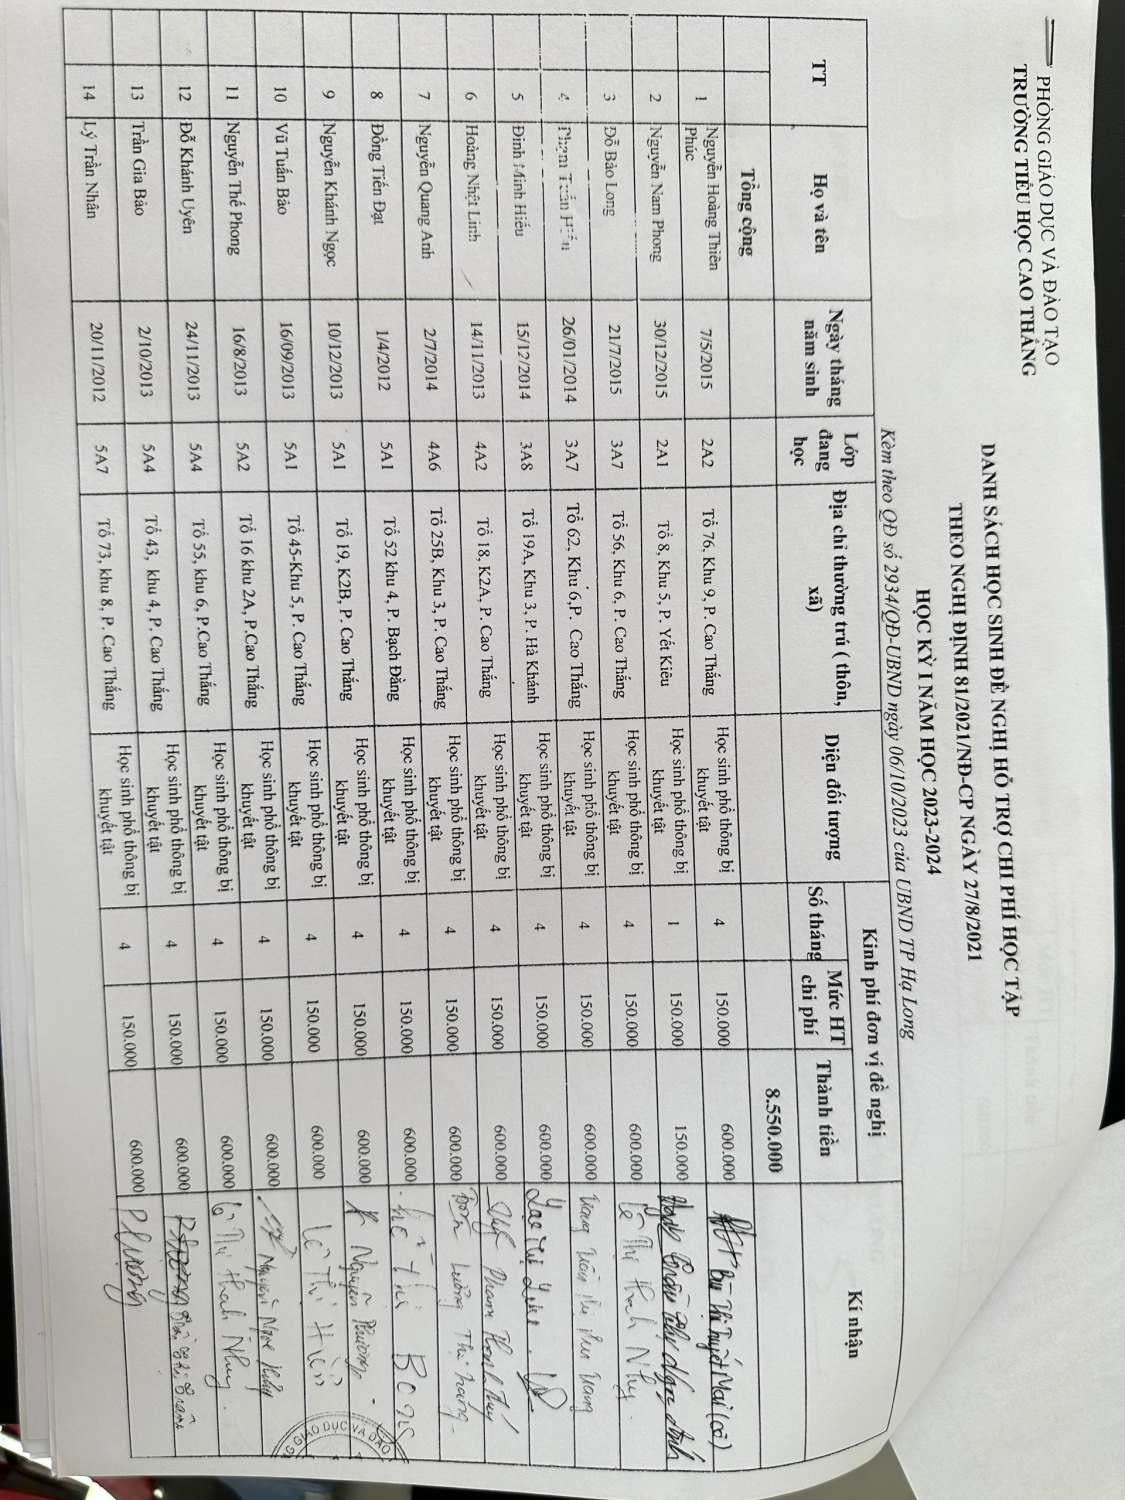 PHÒNG GIÁO DỤC VÀ ĐÀO TẠO
TRƯỜNG TIỂU HỌC CAO THẮNG
DANH SÁCH HỌC SINH ĐỀ NGHỊ HỖ TRỢ CHI PHÍ HỌC TẬP
THEO NGHỊ ĐỊNH 81/2021/NĐ-CP NGÀY 27/8/2021
HỌC KỲ I NĂM HỌC 2023-2024
Kèm theo QĐ số 2934/QĐ-UBND ngày 06/10/2023 của UBND TP Hạ Long
TT Họ và tên Ngày tháng năm sinh Lớp đang học Địa chỉ thường trú ( thôn, xã) Diện đối tượng Kinh phí đơn vị đề nghị Kí nhận
Số tháng Mức HT chi phí Thành tiền
Tổng cộng 8.550.000
1 Nguyễn Hoàng Thiên Phúc 7/5/2015 2A2 Tổ 76, Khu 9, P. Cao Thắng Học sinh phổ thông bị khuyết tật 4 150.000 600.000 Bùi Thị Tuyết Mai (cô)
2 Nguyễn Nam Phong 30/12/2015 2A1 Tổ 8, Khu 5, P. Yết Kiêu Học sinh phổ thông bị khuyết tật 1 150.000 150.000
3 Đỗ Bảo Long 21/7/2015 3A7 Tổ 56, Khu 6, P. Cao Thắng Học sinh phổ thông bị khuyết tật 4 150.000 600.000 Lê Thị Thanh Nhuỵ
4 Phạm Tuấn Hiếu 26/01/2014 3A7 Tổ 62, Khu 6,P. Cao Thắng Học sinh phổ thông bị khuyết tật 4 150.000 600.000
5 Đinh Minh Hiếu 15/12/2014 3A8 Tổ 19A, Khu 3, P. Hà Khánh Học sinh phổ thông bị khuyết tật 4 150.000 600.000
6 Hoàng Nhật Linh 14/11/2013 4A2 Tổ 18, K2A, P. Cao Thắng Học sinh phổ thông bị khuyết tật 4 150.000 600.000
7 Nguyễn Quang Anh 2/7/2014 4A6 Tổ 25B, Khu 3, P. Cao Thắng Học sinh phổ thông bị khuyết tật 4 150.000 600.000
8 Đồng Tiến Đạt 1/4/2012 5A1 Tổ 52 khu 4, P. Bạch Đằng Học sinh phổ thông bị khuyết tật 4 150.000 600.000
9 Nguyễn Khánh Ngọc 10/12/2013 5A1 Tổ 19, K2B, P. Cao Thắng Học sinh phổ thông bị khuyết tật 4 150.000 600.000 Nguyễn Phương
10 Vũ Tuấn Bảo 16/09/2013 5A1 Tổ 45-Khu 5, P. Cao Thắng Học sinh phổ thông bị khuyết tật 4 150.000 600.000 Lê Thị Hiền
11 Nguyễn Thế Phong 16/8/2013 5A2 Tổ 16 khu 2A, P.Cao Thắng Học sinh phổ thông bị khuyết tật 4 150.000 600.000
12 Đỗ Khánh Uyên 24/11/2013 5A4 Tổ 55, khu 6, P.Cao Thắng Học sinh phổ thông bị khuyết tật 4 150.000 600.000
13 Trần Gia Bảo 2/10/2013 5A4 Tổ 43, khu 4, P. Cao Thắng Học sinh phổ thông bị khuyết tật 4 150.000 600.000
14 Lý Trần Nhân 20/11/2012 5A7 Tổ 73, khu 8, P. Cao Thắng Học sinh phổ thông bị khuyết tật 4 150.000 600.000 Phượng
GIÁO DỤC VÀ ĐÀO